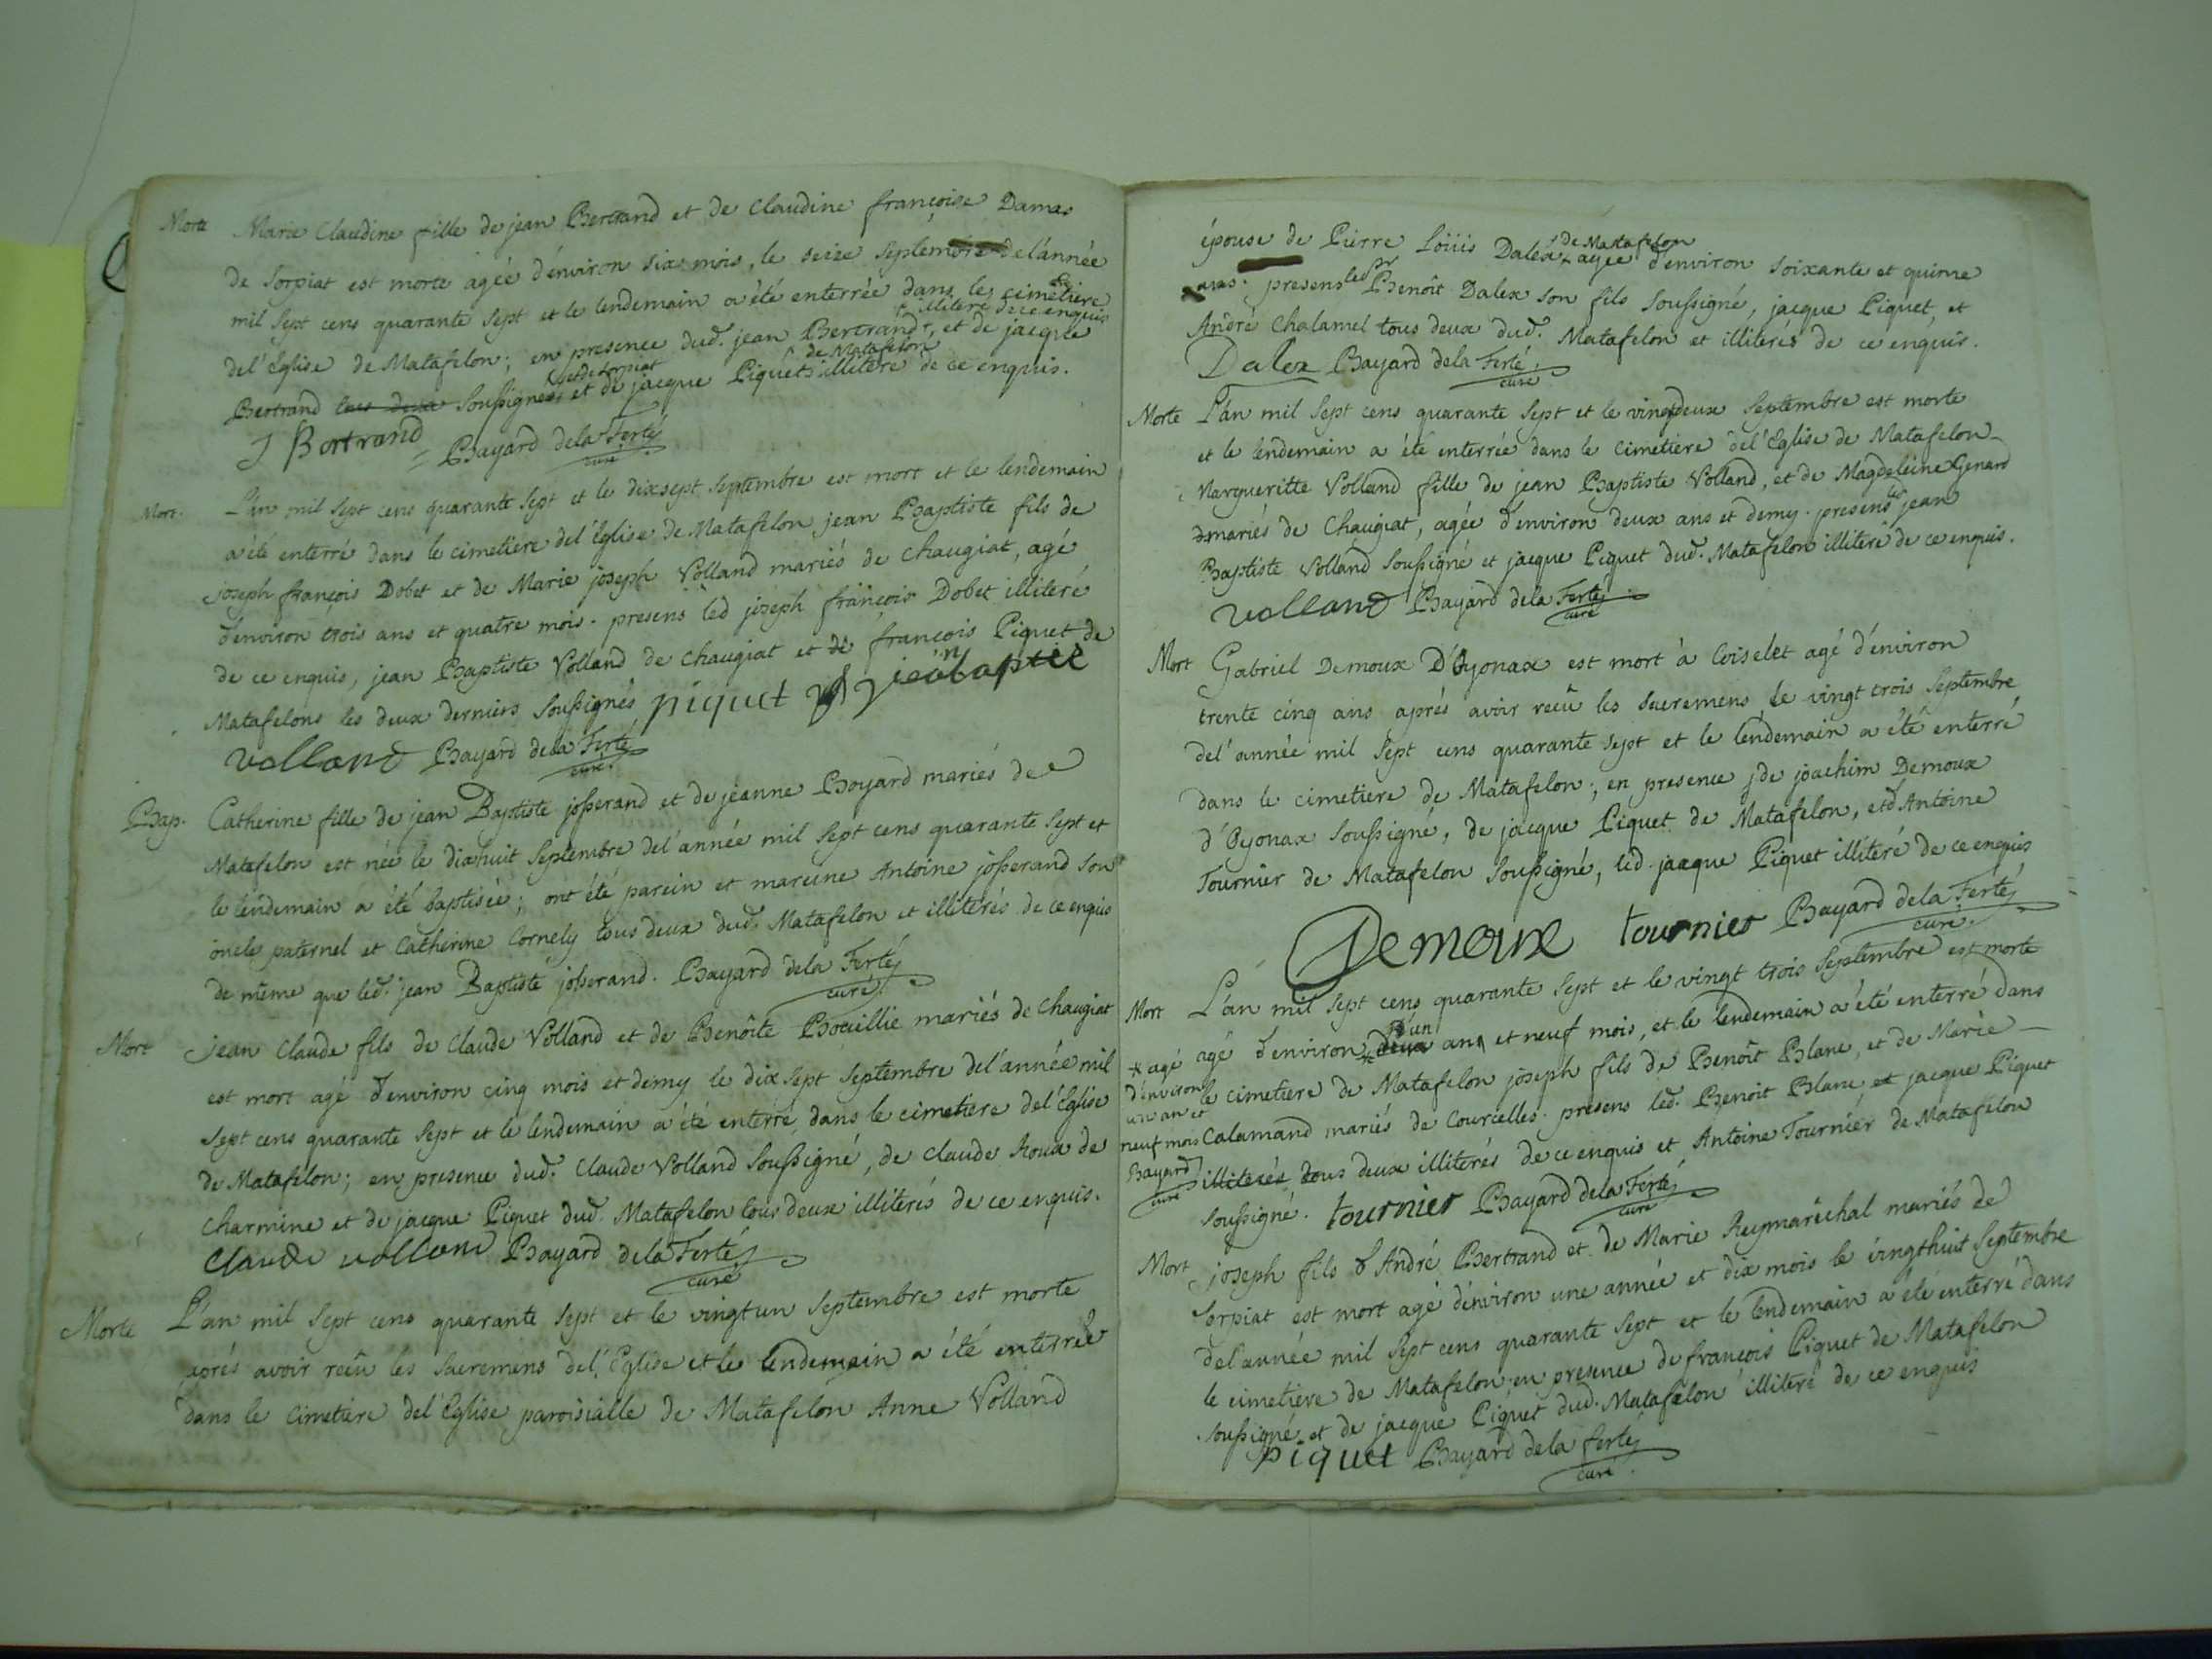 Morte Marie Claudine fille de jean Bertrand et de Claudine françoise Damas
de Sorpiat est morte agée d'environ six mois, le seize septembre del'année
mil sept cens quarante sept et le lendemain a été enterrée dans le cimetiere
illiteré de ce enquis
del'Eglise de Matafelon; en presence dud. jean Bertrand, et de jacque
de Matafelon
Bertrand tous deux soussignés et de jacque Piquet illiteré de ce enquis.
J Bertrand Bayard dela Ferté
curé
Mort. L'an mil sept cens quarante sept et le dixsept septembre est mort et le lendemain
a été enterré dans le cimetiere del'Eglise de Matafelon jean Baptiste fils de
joseph françois Dobet et de Marie joseph Volland mariés de Chaugiat, agé
d'environ trois ans et quatre mois. presens led joseph françois Dobet illiteré
de ce enquis, jean Baptiste Volland de Chaugiat et de françois Piquet de
Matafelons les deux derniers soussignés piquet jeanbaptie
volland Bayard dela Ferté
curé
Bap. Catherine fille de jean Baptiste josserand et de jeanne Boyard mariés de
Matafelon est née le dixhuit septembre del'année mil sept cens quarante sept et
le lendemain a été baptisée; ont été parein et mareine Antoine josserand son
oncle paternel et Catherine Cornely tous deux dud. Matafelon et illiterés de ce enquis
de même que led. jean Baptiste josserand. Bayard dela Ferté
curé
Mort jean Claude fils de Claude Volland et de Benoîte Bouillie mariés de Chaugiat
est mort agé d'environ cinq mois et demy le dix sept septembre del'année mil
sept cens quarante sept et le lendemain a été enterré dans le cimetiere del'Eglise
de Matafelon; en presence dud. Claude Volland soussigné, de Claude Roux de
Charmine et de jacque Piquet dud. Matafelon tous deux illiterés de ce enquis.
Claude volland Bayard dela Ferté
curé
Morte L'an mil sept cens quarante sept et le vingtun septembre est morte
aprés avoir reçu les sacremens del'Eglise et le lendemain a été enterrée
dans le Cimetiere del'Eglise paroisialle de Matafelon Anne Volland
de Matafelon
épouse de Pierre Loüis Dalex agée d'environ soixante et quinze
ans. presens led sr Benoît Dalex son fils soussigné, jacque Piquet, et
André Chalamel tous deux dud. Matafelon et illiterés de ce enquis.
Dalex Bayard dela Ferté
curé
Morte L'an mil sept cens quarante sept et le vingtdeux septembre est morte
et le lendemain a été enterrée dans le cimetiere del'Eglise de Matafelon
Margueritte Volland fille de jean Baptiste Volland, et de Magdeleine Genard
mariés de Chaugiat, agée d'environ deux ans et demy. presens led jean
Baptiste Volland soussigné et jacque Piquet dud. Matafelon illiteré de ce enquis.
volland Bayard dela Ferté
curé
Mort Gabriel Demoux D'Oyonax est mort à Coiselet agé d'environ
trente cinq ans aprés avoir reçu les sacremens le vingt trois septembre
del'année mil sept cens quarante sept et le lendemain a été enterré
dans le cimetiere de Matafelon; en presence de joachim Demoux
d'Oyonax soussigné, de jacque Piquet de Matafelon, et d'Antoine
Tournier de Matafelon soussigné, led. jacque Piquet illiteré de ce enquis
Demoux tournier Bayard dela Ferté
curé
Mort L'an mil sept cens quarante sept et le vingt trois septembre est morte
agé d'environ deux d'un an et neuf mois, et le lendemain a été enterré dans
le cimetiere de Matafelon joseph fils de Benoît Blanc, et de Marie
Calamand mariés de Courcelles. presens led. Benoit Blanc, et jacque Piquet
illiterés tous deux illiterés de ce enquis et Antoine Tournier de Matafelon
soussigné. tournier Bayard dela Ferté
curé
* agé
d'environ
un an et
neuf mois
Bayard
curé
Mort joseph fils d'André Bertrand et de Marie Reymaréchal mariés de
Sorpiat est mort agé d'environ une année et dix mois le vingthuit septembre
del'année mil sept cens quarante sept et le lendemain a été enterré dans
le cimetiere de Matafelon en presence de françois Piquet de Matafelon
soussigné et de jacque Piquet dud. Matafelon illiteré de ce enquis
piquet Bayard dela ferté
curé